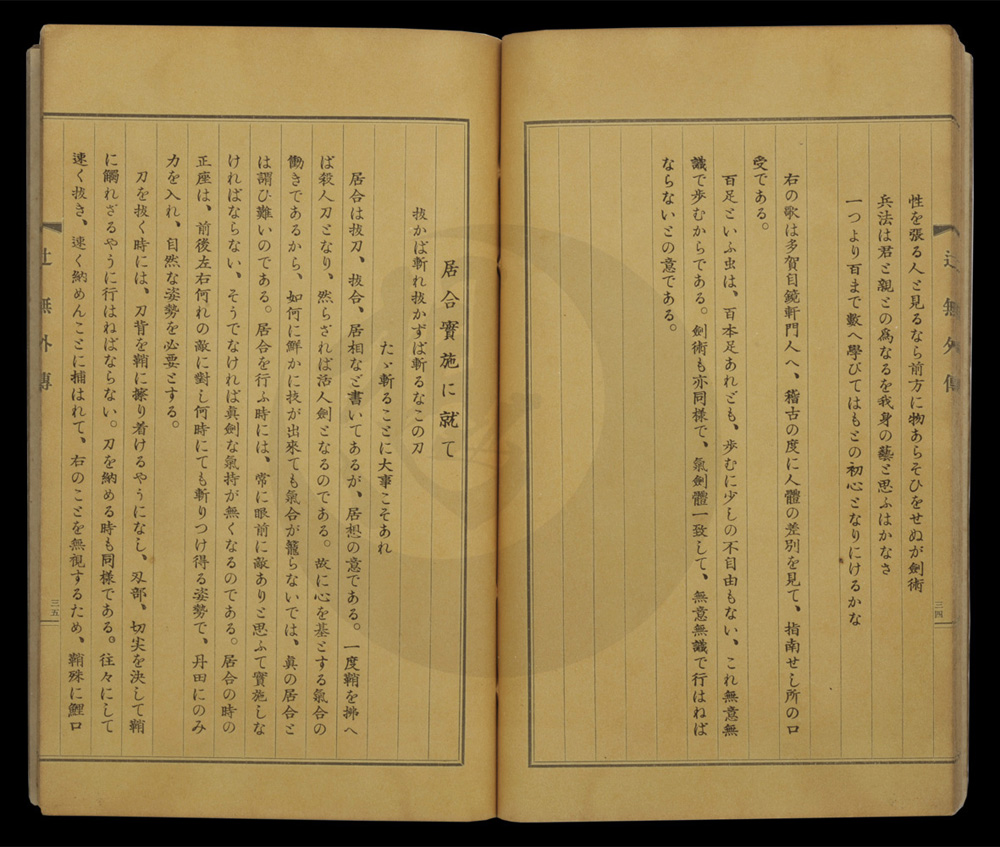 辻無外傳
三四
性を張る人と見るなら前方に物あらそひをせぬが劍術
兵法は君と親との爲なるを我身の藝と思ふはかなさ
一つより百まで數へ學びてはもとの初心となりにけるかな
右の歌は多賀自鏡軒門人へ、稽古の度に人體の差別を見て、指南せし所の口
受である。
百足といふ虫は、百本足あれども、歩むに少しの不自由もない、これ無意無
識で歩むからである。劍術も亦同樣で、氣劍體一致して、無意無識で行はねば
ならないとの意である。
居合實施に就て
抜かば斬れ抜かずば斬るなこの刀
たゞ斬ることに大事こそあれ
居合は抜刀、抜合、居相など書いてあるが、居想の意である。一度鞘を拂へ
ば殺人刀となり、然らざれば活人劍となるのである。故に心を基とする氣合の
働きであるから、如何に鮮かに技が出來ても氣合が籠らないでは、眞の居合と
は謂ひ難いのである。居合を行ふ時には、常に眼前に敵ありと思ふて實施しな
ければならない、そうでなければ眞劍な氣持が無くなるのである。居合の時の
正座は、前後左右何れの敵に對し何時にても斬りつけ得る姿勢で、丹田にのみ
力を入れ、自然な姿勢を必要とする。
刀を抜く時には、刀背を鞘に擦り着けるやうになし、刄部、切尖を決して鞘
に觸れざるやうに行はねばならない。刀を納める時も同樣である。往々にして
速く抜き、速く納めんことに捕はれて、右のことを無視するため、鞘殊に鯉口
辻無外傳
三五